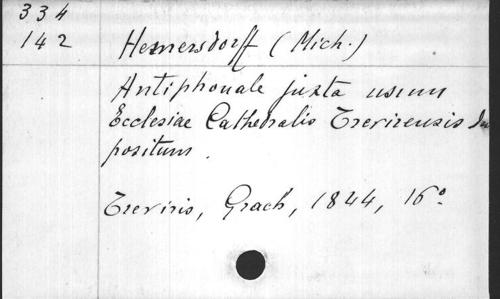 334
142 Hemersdorff (Mich.)
Antiphonale juxta usum
Ecclesiae Cathedralis Trevirensis
positum.
Treviris, Grach, 1844, 16°.